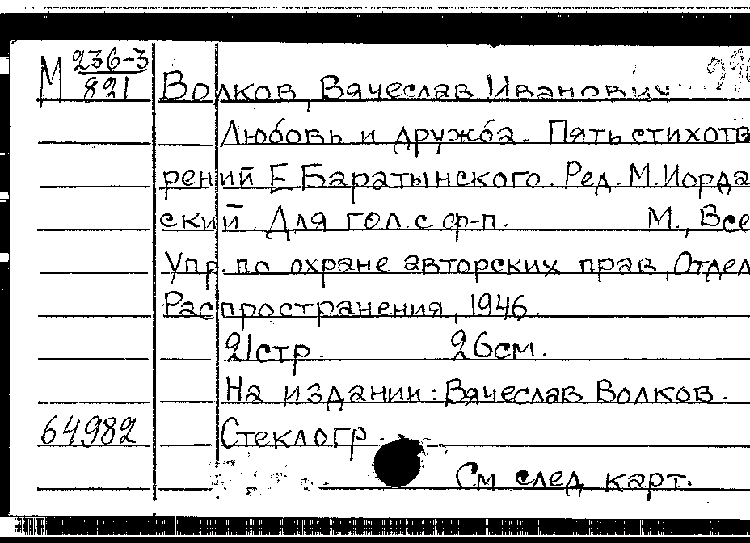 М 236-3
821
Волков, Вячеслав Иванович
Любовь и дружба. Пять стихотв
рений Е Баратынского. Ред. М. Иорда
ский Для гол. с ф-п. М., Все
Упр. по охране авторских прав, Отдел
Распространения, 1946
21 стр 26 см.
На издании: Вячеслав Волков.
64982 Стеклогр.
См след карт.